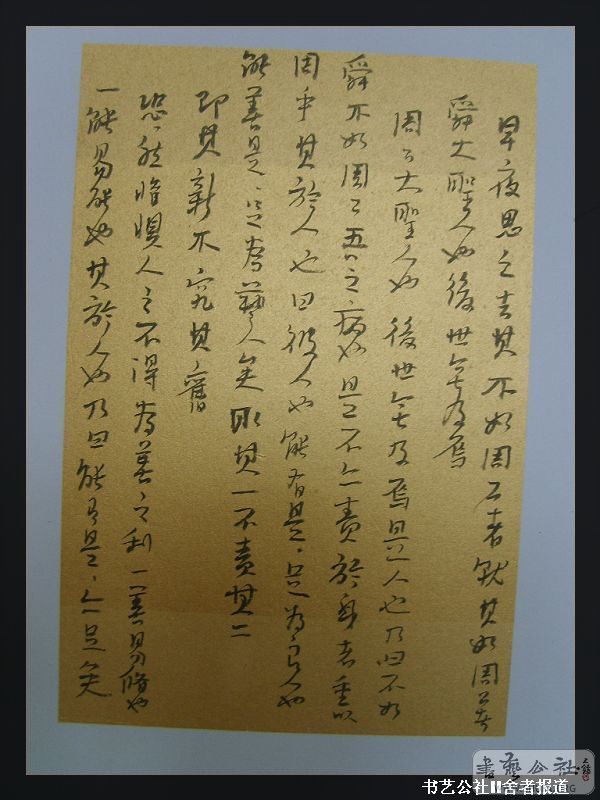 早夜思之去其不如周公者就其如周公者
舜大聖人也後世無及焉
周公大聖人也後世無及焉是人也乃曰不如
舜不如周公吾之病也是不亦責於身者重以
周乎其於人也曰彼人也能有是々足為良人也
能善是々足為藝人矣取其一不責其二
即其新不究其舊
恐々然惟懼人之不得為善之利一善易脩也
一能易能也其於人也乃曰能有是々亦足矣
書藝公社
书艺公社II舍者报道